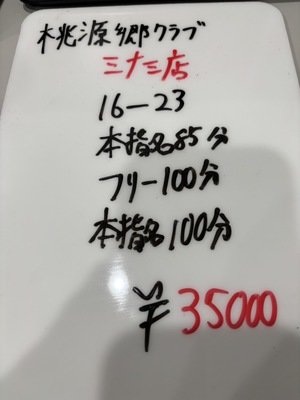 桃源郷クラブ
三十三店
16-23
本指名85分
フリー100分
本指名100分
¥35000